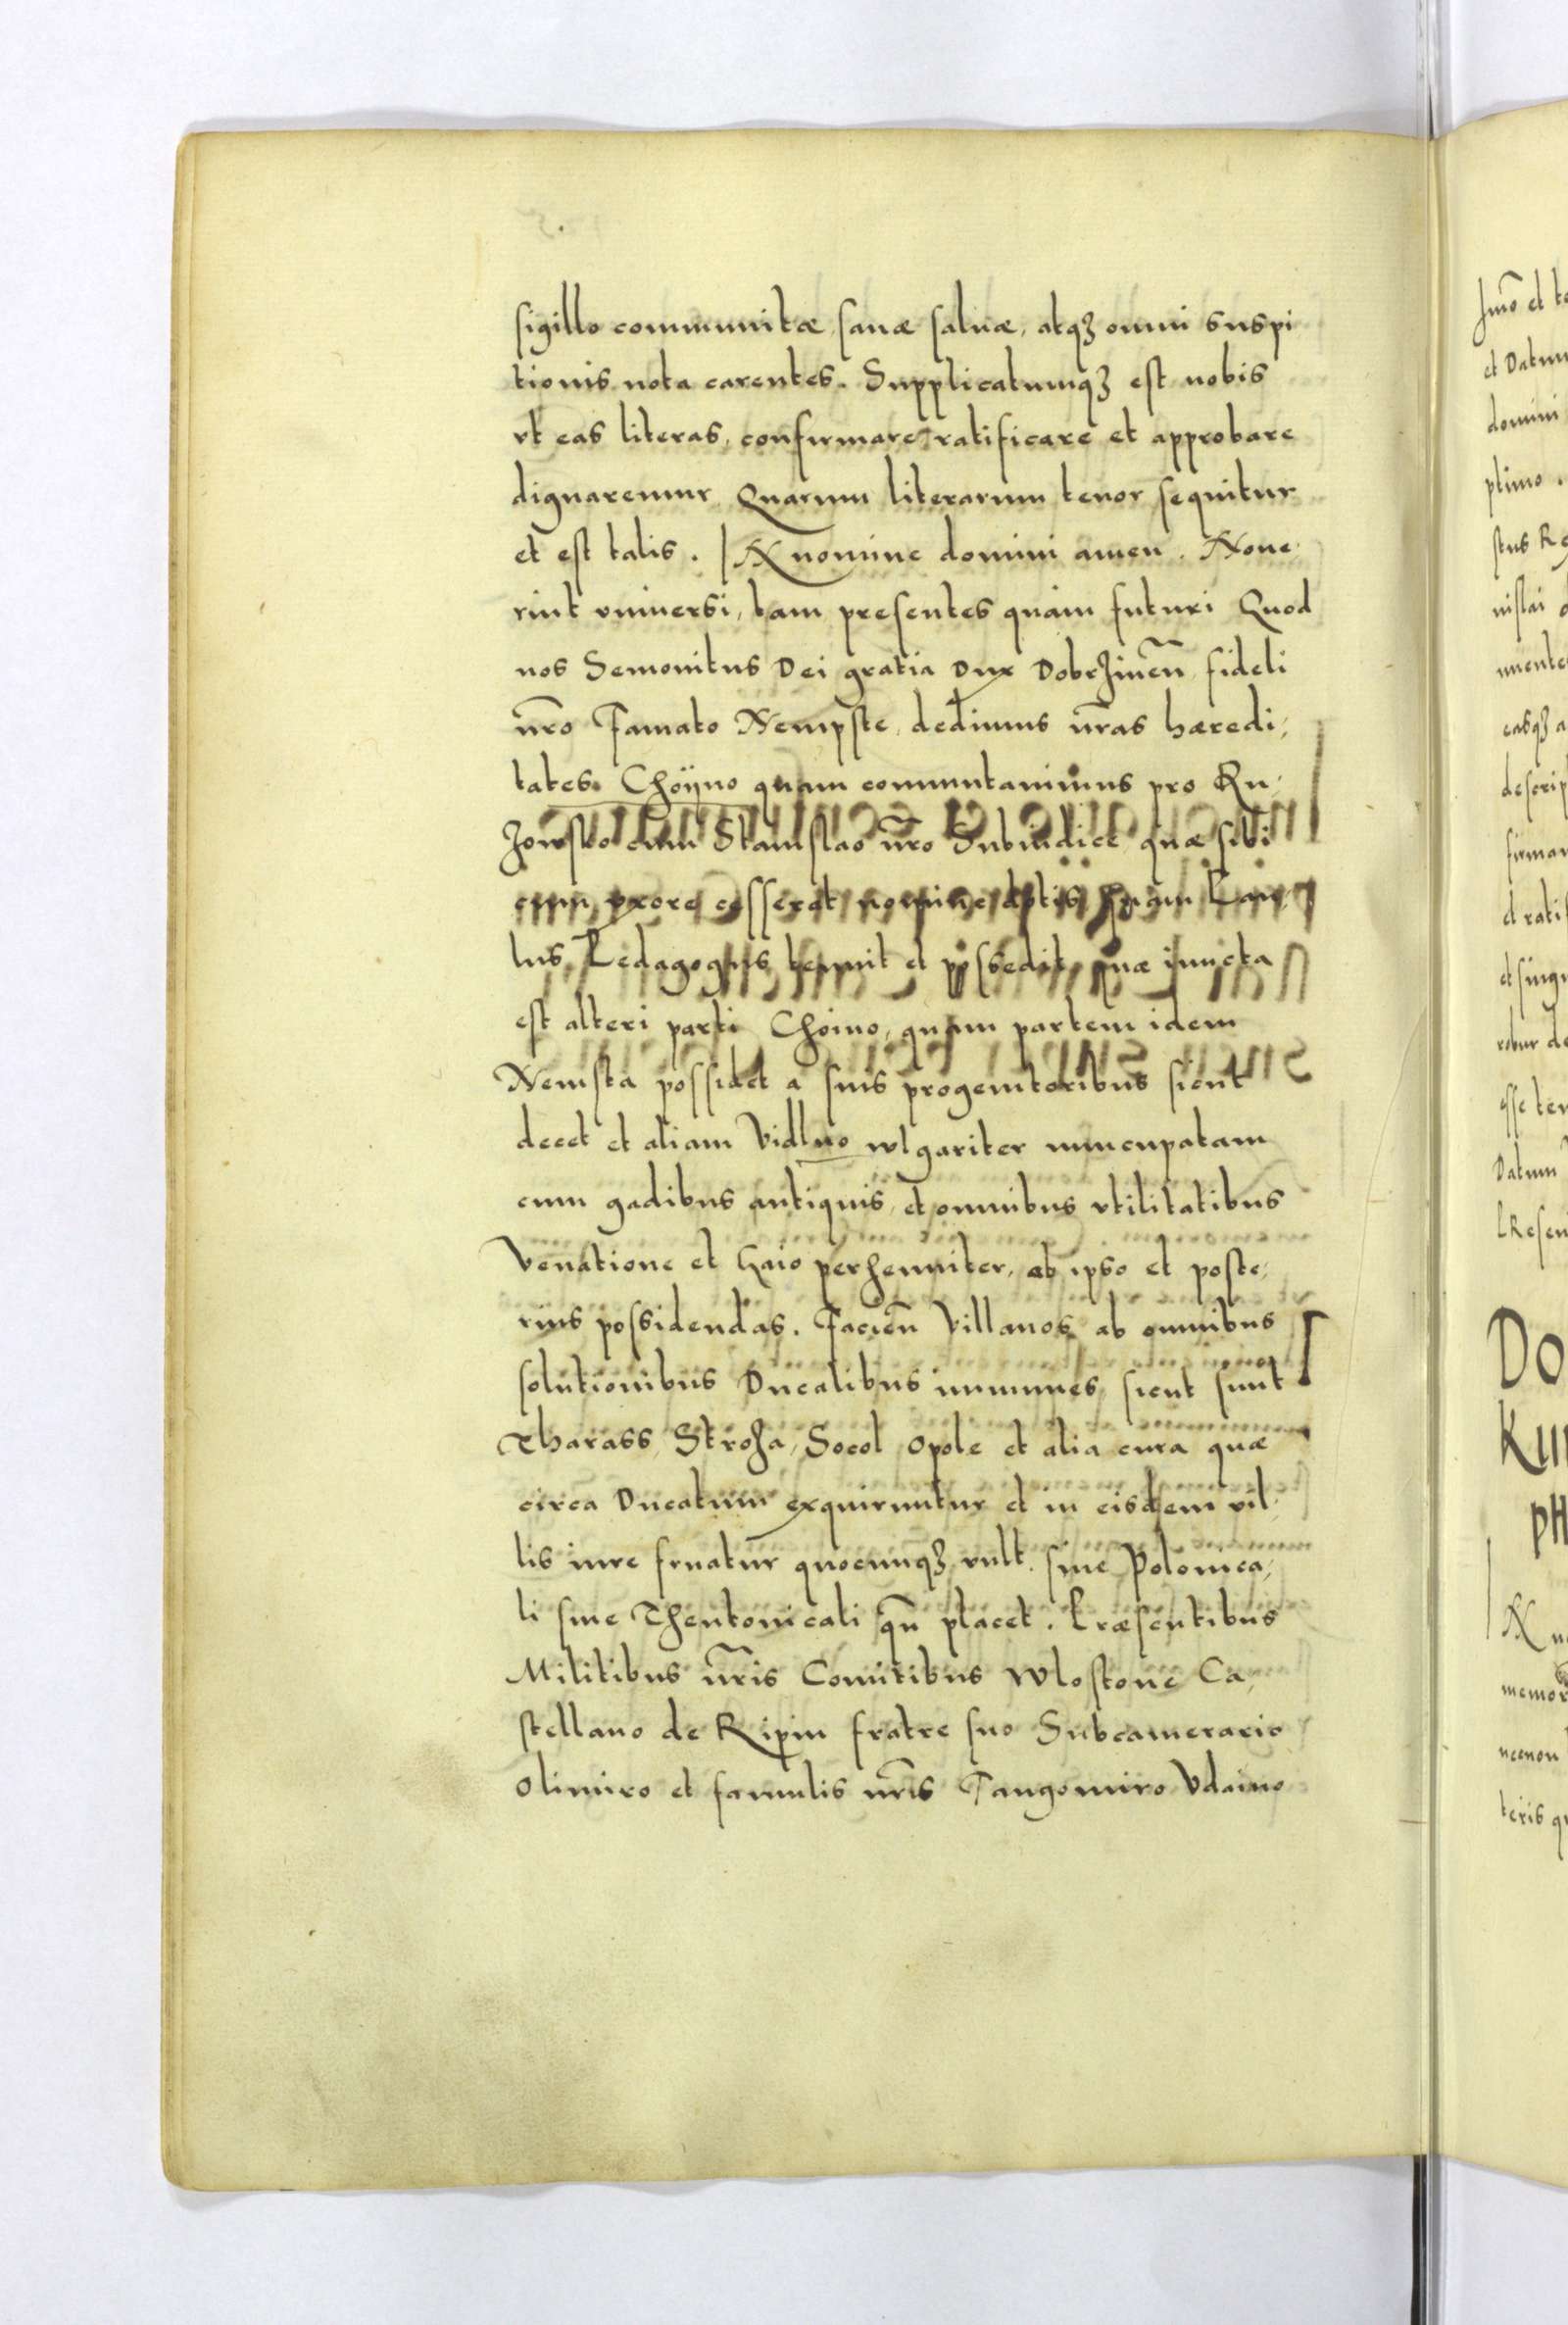 sigillo communitæ, sanæ saluæ, atqꝫ omni suspi
tionis nota carentes. Supplicatumqꝫ est nobis
vt eas literas, confirmare ratificare et approbare
dignaremur. Quarum literarum tenor sequitur
et est talis. IN nomine domini amen. Noue
rint vniuersi, tam presentes quàm futuri Quod
nos Semouitus Dei gratia Dux Dobrzineñ fideli
nr̃o Famato Nempste, dedimus nr̃as hæredi,
tates. Choÿno quam commutauimus pro Ru,
zowsko cum Stanislao nr̃o Subiudice quæ sibi
cum vxore cesserat nomine dotis quam Pau,
lus Pedagogus tenuit et possedit, quæ iuncta
est alteri parti Choino, quam partem idem
Nemsta possidet a suis progenitoribus sicut
decet et aliam Vidluo wlgariter nuncupatam
cum gadibus antiquis, et omnibus vtilitatibus
Venatione et Gaio perhenniter, ab ipso et poste,
rius possidendas. Facieñ Villanos ab omnibus
solutionibus Ducalibus immunes, sicut sunt
Tharass, Stroza, Socol Opole et alia cura quæ
circa Ducatum exquiruntur et in eisdem vil,
lis iure fruatur quocunqꝫ vult. siue Polonica,
li siue Theutonicali qñ placet. Præsentibus
Militibus nr̃is Comitibus Wlostone Ca,
stellano de Ripin fratre suo Subcamerario
Olimiro et famulis nr̃is Fangomiro Vdaino
Jmo et
et Datum
domini
ptimo.
stus
nislai
easqꝫ
descrip
firmar
et rati
et singu
robur de
esse ten
Datum
DO
KU
PH
memor
necnon
teris